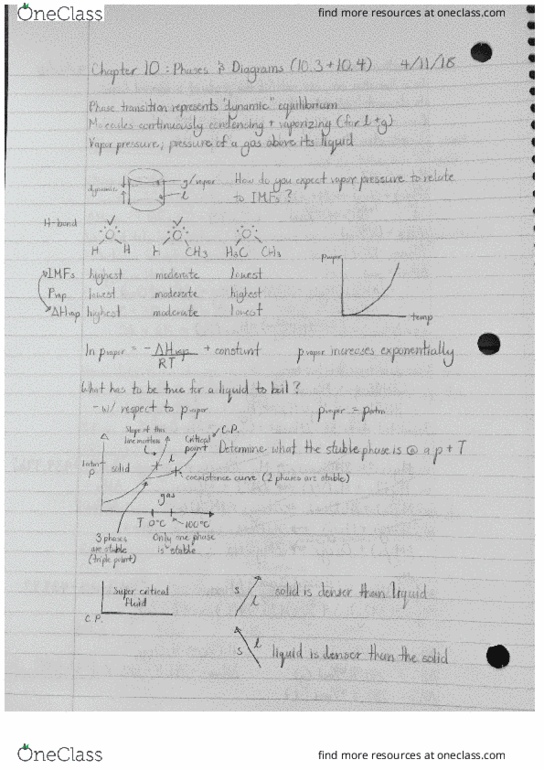 OneClass
find more resources at oneclass.com
Chapter 10 : Phases & Diagrams (10.3 + 10.4) 4/11/18
Phase transition represents "dynamic" equilibrium
Molecules continuously condencing + vaporizing (for l + g)
Vapor pressure; pressure of a gas above its liquid
dynamic g/vapor How do you expect vapor pressure to relate
l to IMFs ?
H-bond ✓ ✓
O O O
H H H CH₃ H₃C CH₃
IMFs highest moderate lowest
Pvap lowest moderate highest
ΔHvap highest moderate lowest
Pvapor
temp
ln Pvapor = -ΔHvap/RT + constant Pvapor increases exponentially
What has to be true for a liquid to boil ?
- w/ respect to Pvapor Pvapor = Patm
Slope of this line
Critical point
C.P.
Determine what the stable phase is @ a p + T
P
solid
l
coexistence curve (2 phases are stable)
gas
T 0°C 100°C
3 phases are stable (triple point)
Only one phase is stable
Super critical Fluid
C.P.
s l solid is denser than liquid
s l liquid is denser than the solid
OneClass
find more resources at oneclass.com